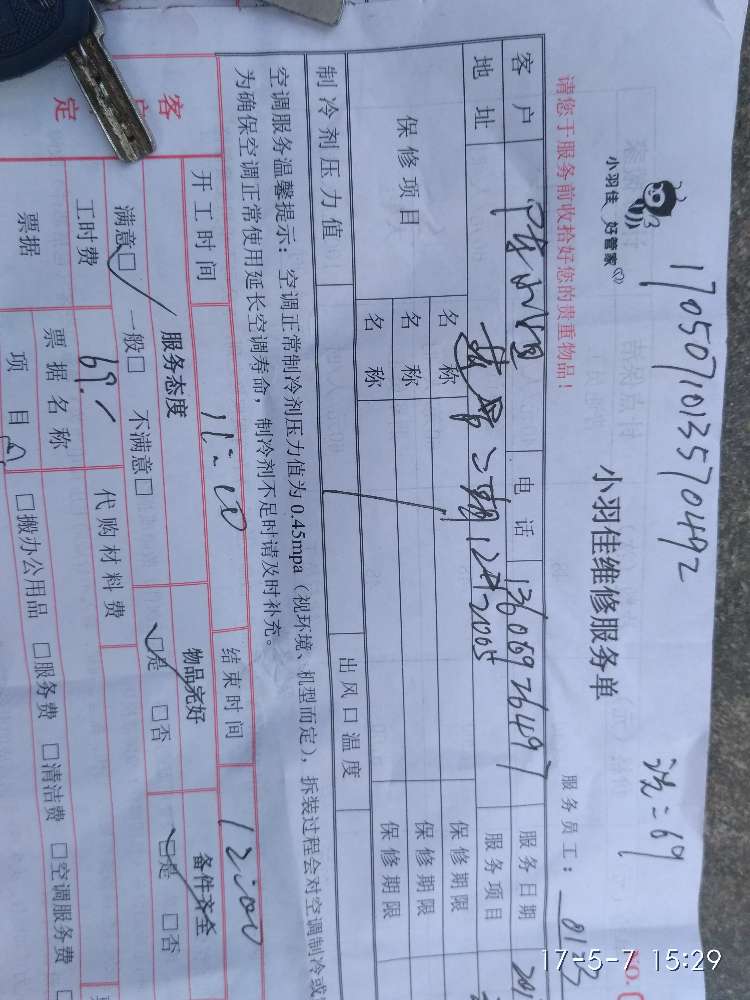 170507101357049 2
洗=69
小羽佳 好管家
小羽佳维修服务单
NO.
请您于服务前收拾好您的贵重物品！
服务员工：
客户
电话
13606926497
服务日期
地址
二期12#2065
服务项目
保修项目
名称
保修期限
名称
保修期限
名称
保修期限
制冷剂压力值
出风口温度
空调服务温馨提示：空调正常制冷剂压力值为0.45mpa（视环境、机型而定），拆装过程会对空调制冷或
为确保空调正常使用延长空调寿命，制冷剂不足时请及时补充。
开工时间
11:00
结束时间
12:00
客户
服务态度
物品完好
备件齐全
满意□ 一般□ 不满意□
□是 □否
□是 □否
定
工时费
69.
代购材料费
票据
票据名称
项目
□搬办公用品 □服务费 □清洁费 □空调服务费
17-5-7 15:29